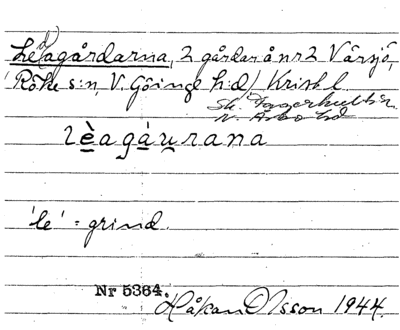 Le(d)agårdarna, 2 gårdar å nr 2 Vårsjö,
Röke s:n, V. Göinge h:d, Krist l.
Sk. Fagerhults sn
N. Åsbo hd
lèagáurana
'le' = grind.
Nr 5364.
Håkan Olsson 1944.